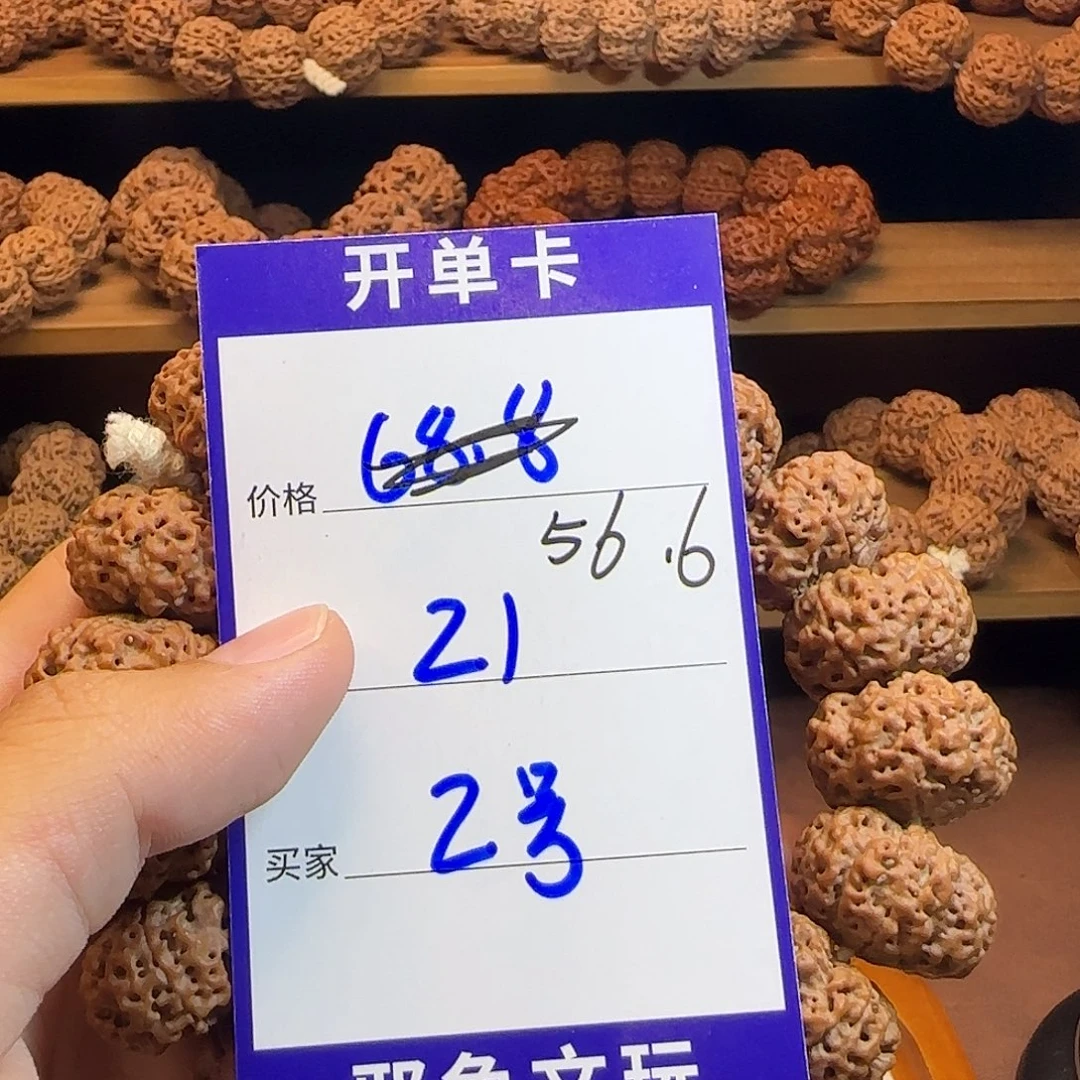 开单卡
价格 68.8
56.6
21
买家 2号
文玩